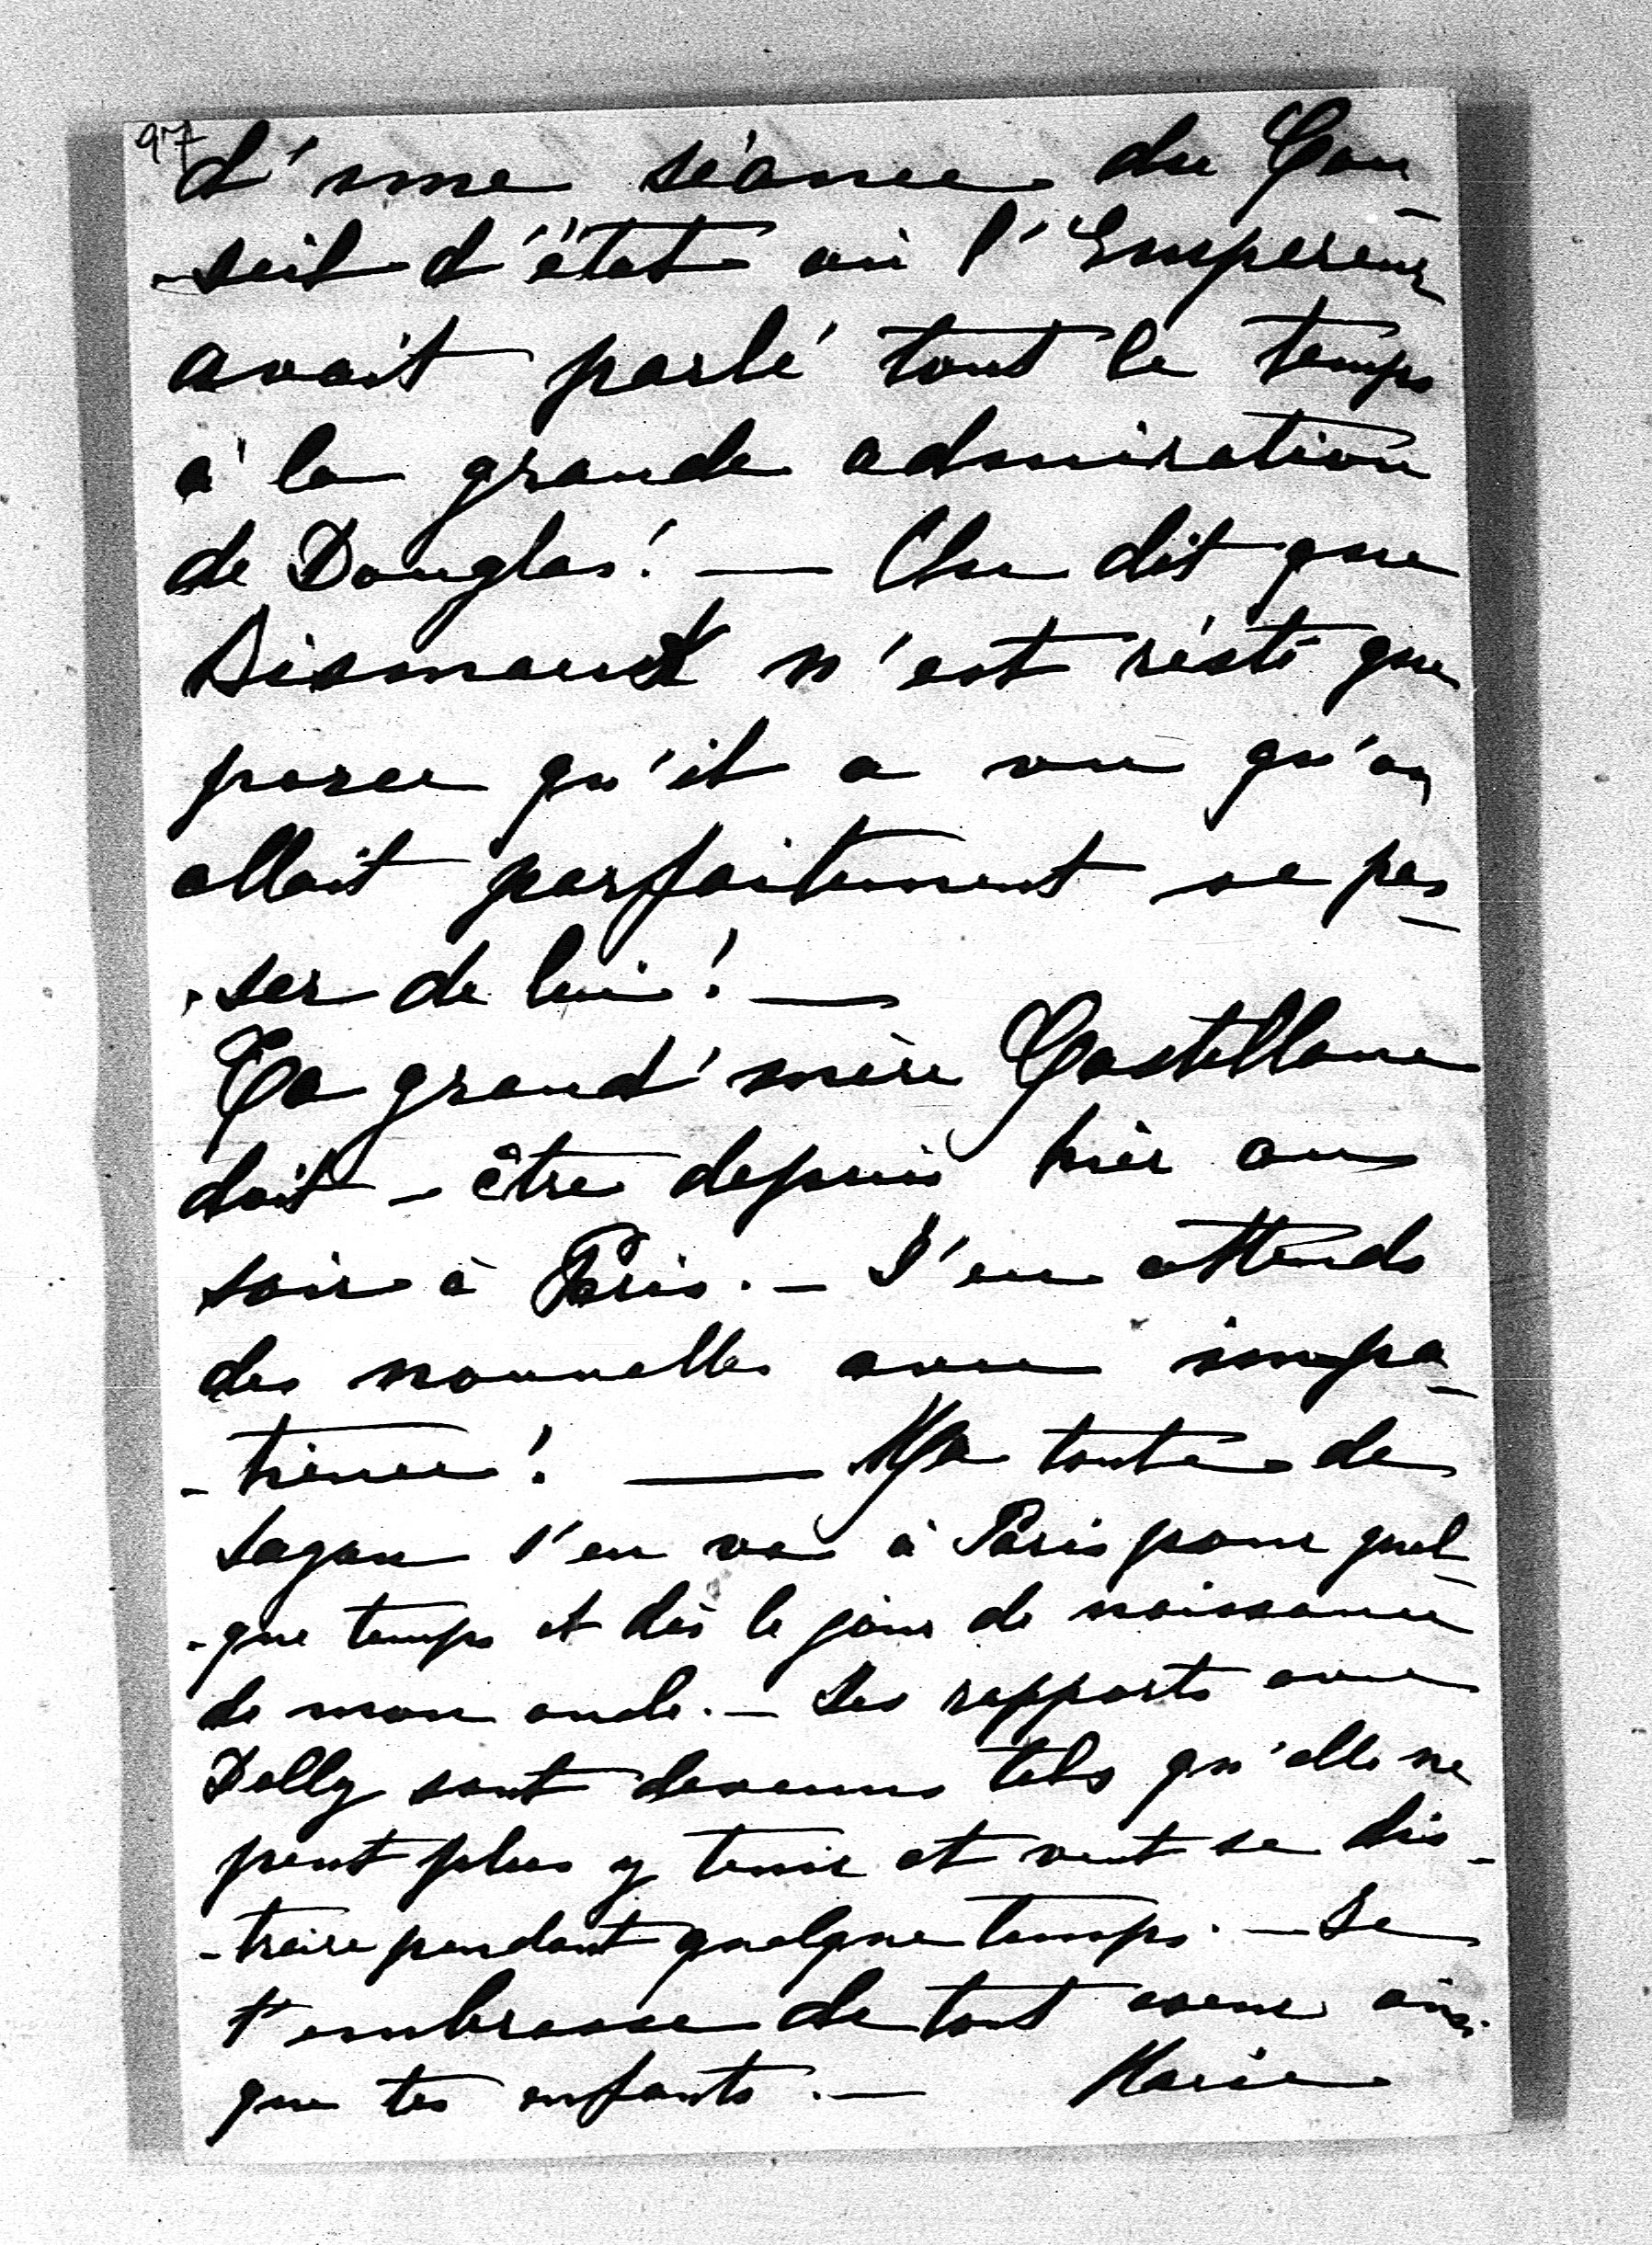 97
d'une séance du Con-
-seil d'état où l'Empereur
avait parlé tout le temps
à la grande admiration
de Douglas! — On dit que
Bismarck n'est resté que
parce qu'il a vu qu'on
allait parfaitement se pas-
-ser de lui! —
Ta grand'mère Castellane
doit-être depuis hier au
soir à Paris. — J'en attends
des nouvelles avec impa-
-tience! — Ma tante de
Sagan s'en va à Paris pour quel-
-que temps et dès le jour de naissance
de mon oncle. — Ses rapports avec
Dolly sont devenus tels qu'elle ne
peut plus y tenir et veut se dis-
-traire pendant quelque temps. — Je
t'embrasse de tout coeur ainsi
que tes enfants. — Marie